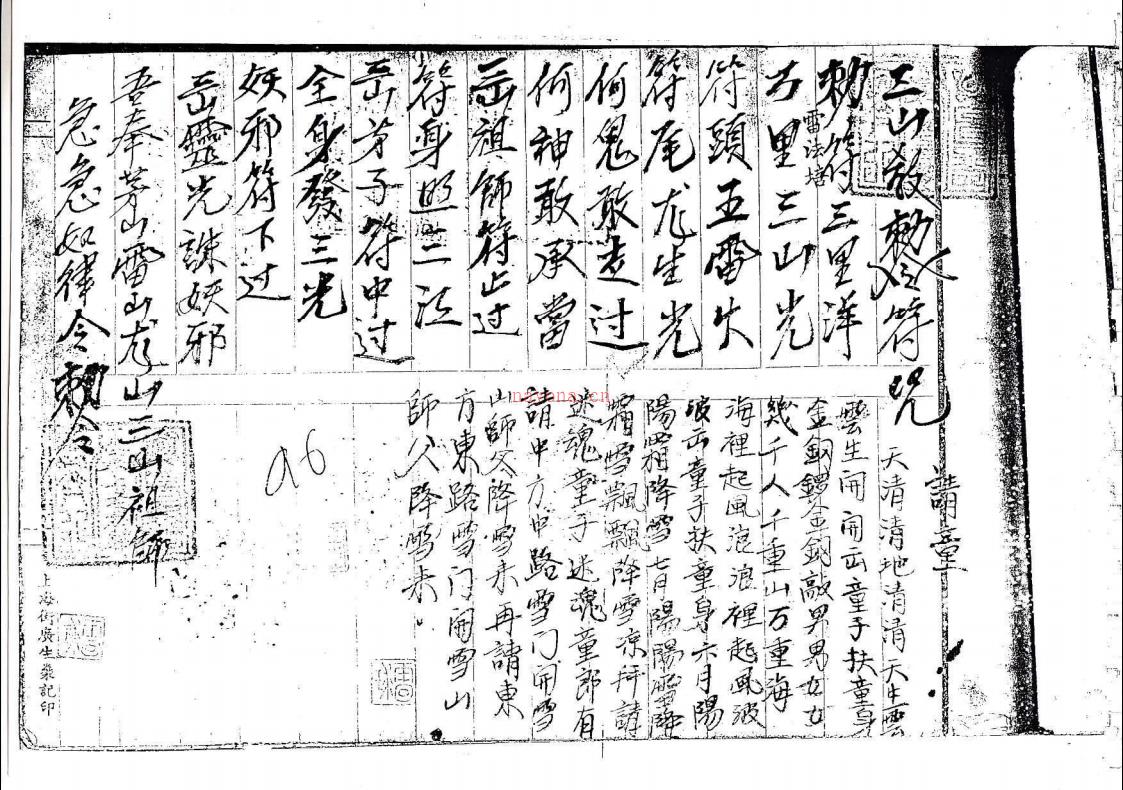 三山教勅令符咒
勅符三里洋
雷法壇
方里三山光
符頭五雷火
符尾尤生光
何鬼敢走过
何神敢承當
岳祖師符止过
符身照三江
岳弟子符中过
全身發三光
妖邪符下过
岳靈光誅妖邪
吾奉茅山雷山龙山三山祖師
急急如律令勅令
請童
天清清地清清天生雲
雲生開開岳童子扶童身
金銅鑼金銅敲男男女女
幾千人千重山万重海
海裡起風浪浪裡起風波
波岳童子扶童身六月陽
陽霜降雪七月陽陽霜降
霜雪飄飄降雪凉拜請
迷魂童子迷魂童郎有
請中方中路雪门開雪
山師父降雪来再請東
方東路雪门開雪山
師父降雪来
a6
nayona.cn
上海街廣生 記印